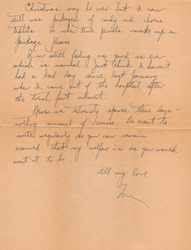 Christmas may be over but I can
still use packages of candy and choice
tidbits. So when time permits make up an
package. Please
I'm still feeling as good as ever
which is normal. Just think I haven't
had a bad day since last January
when I came out of the hospital after
the
News is utterly sparse these days -
nothing unusual of course. Do want to
write regularly so you can remain
assured that my welfare is as you would
want it to be.
All my love